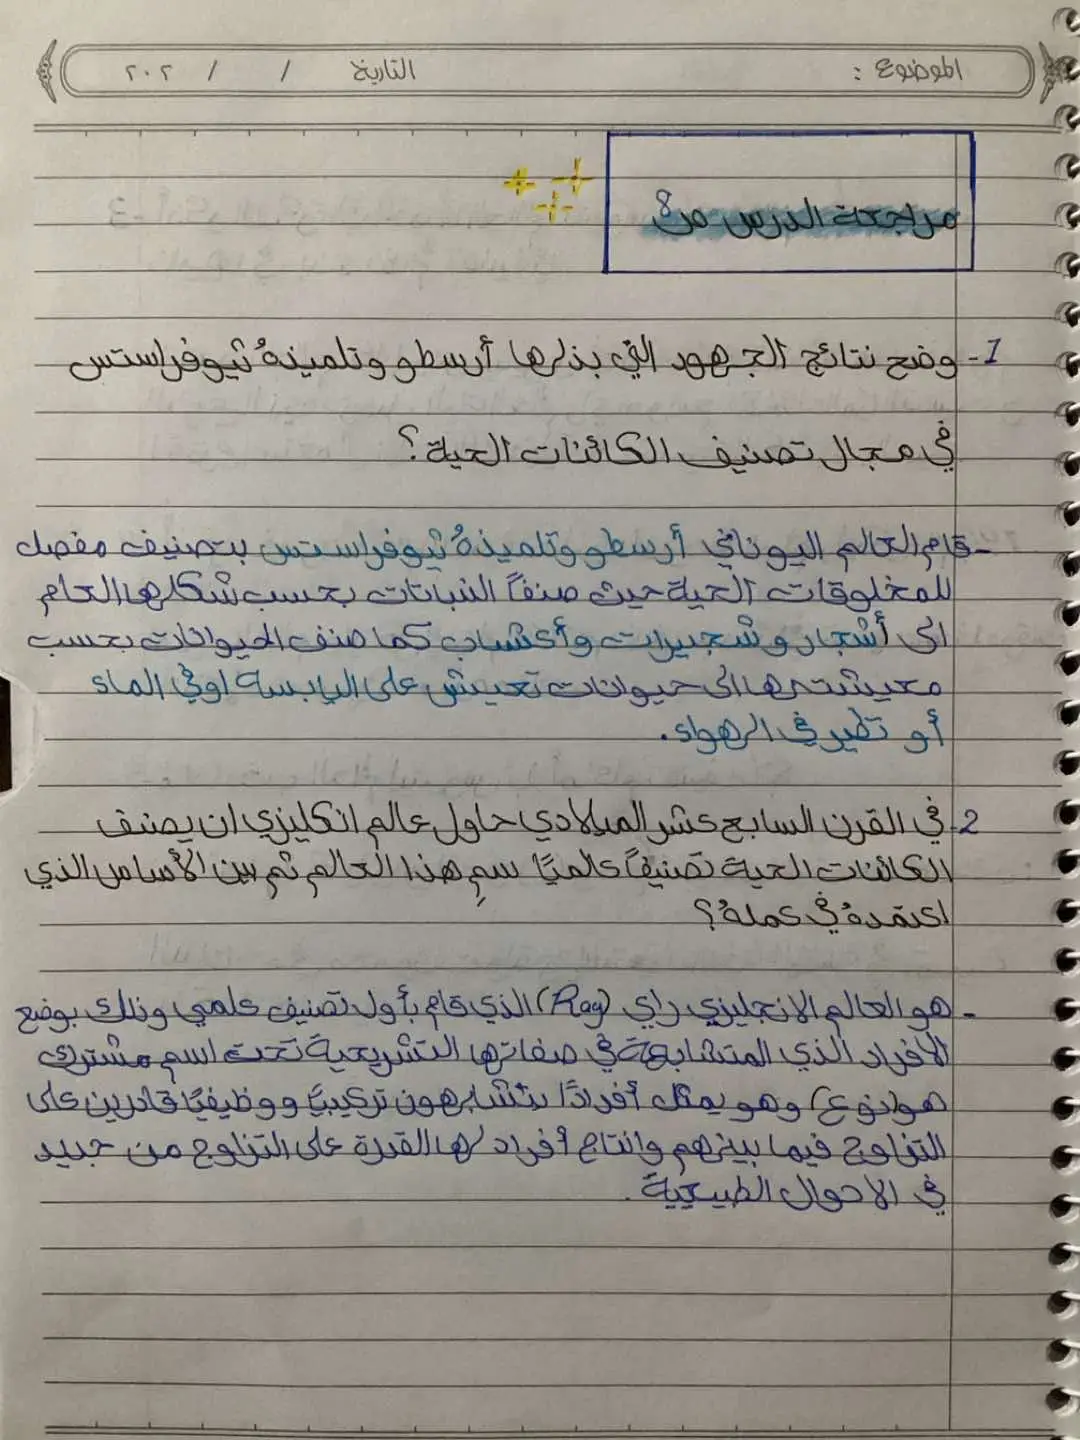 الموضوع : التاريخ / / ٢٠٢
مراجعة الدرس ص8
1- وضح نتائج الجهود التي بذلها أرسطو وتلميذهُ ثيوفراستس
في مجال تصنيف الكائنات الحية؟
- قام العالم اليوناني أرسطو وتلميذهُ ثيوفراستس بتصنيف مفصل
للمخلوقات الحية حيث صنفاً النباتات بحسب شكلها العام
الى أشجار وشجيرات وأعشاب كما صنف الحيوانات بحسب
معيشتها الى حيوانات تعيش على اليابسة اوفي الماء
أو تطير في الهواء.
2- في القرن السابع عشر الميلادي حاول عالم انكليزي ان يصنف
الكائنات الحية تصنيفاً عالميًا سمِ هذا العالم ثم بين الأساس الذي
اعتمدهُ في عملهُ؟
- هو العالم الانجليزي راي (Ray) الذي قام بأول تصنيف علمي وذلك بوضع
الافراد الذي المتشابهة في صفاتها التشريحية تحت اسم مشترك
هوانوع) وهو يمثل أفرادًا يتشابهون تركيبيًا ووظيفيًا قادرين على
التزاوج فيما بينهم وانتاج أفراد لها القدرة على التزاوج من جديد
في الاحوال الطبيعية.